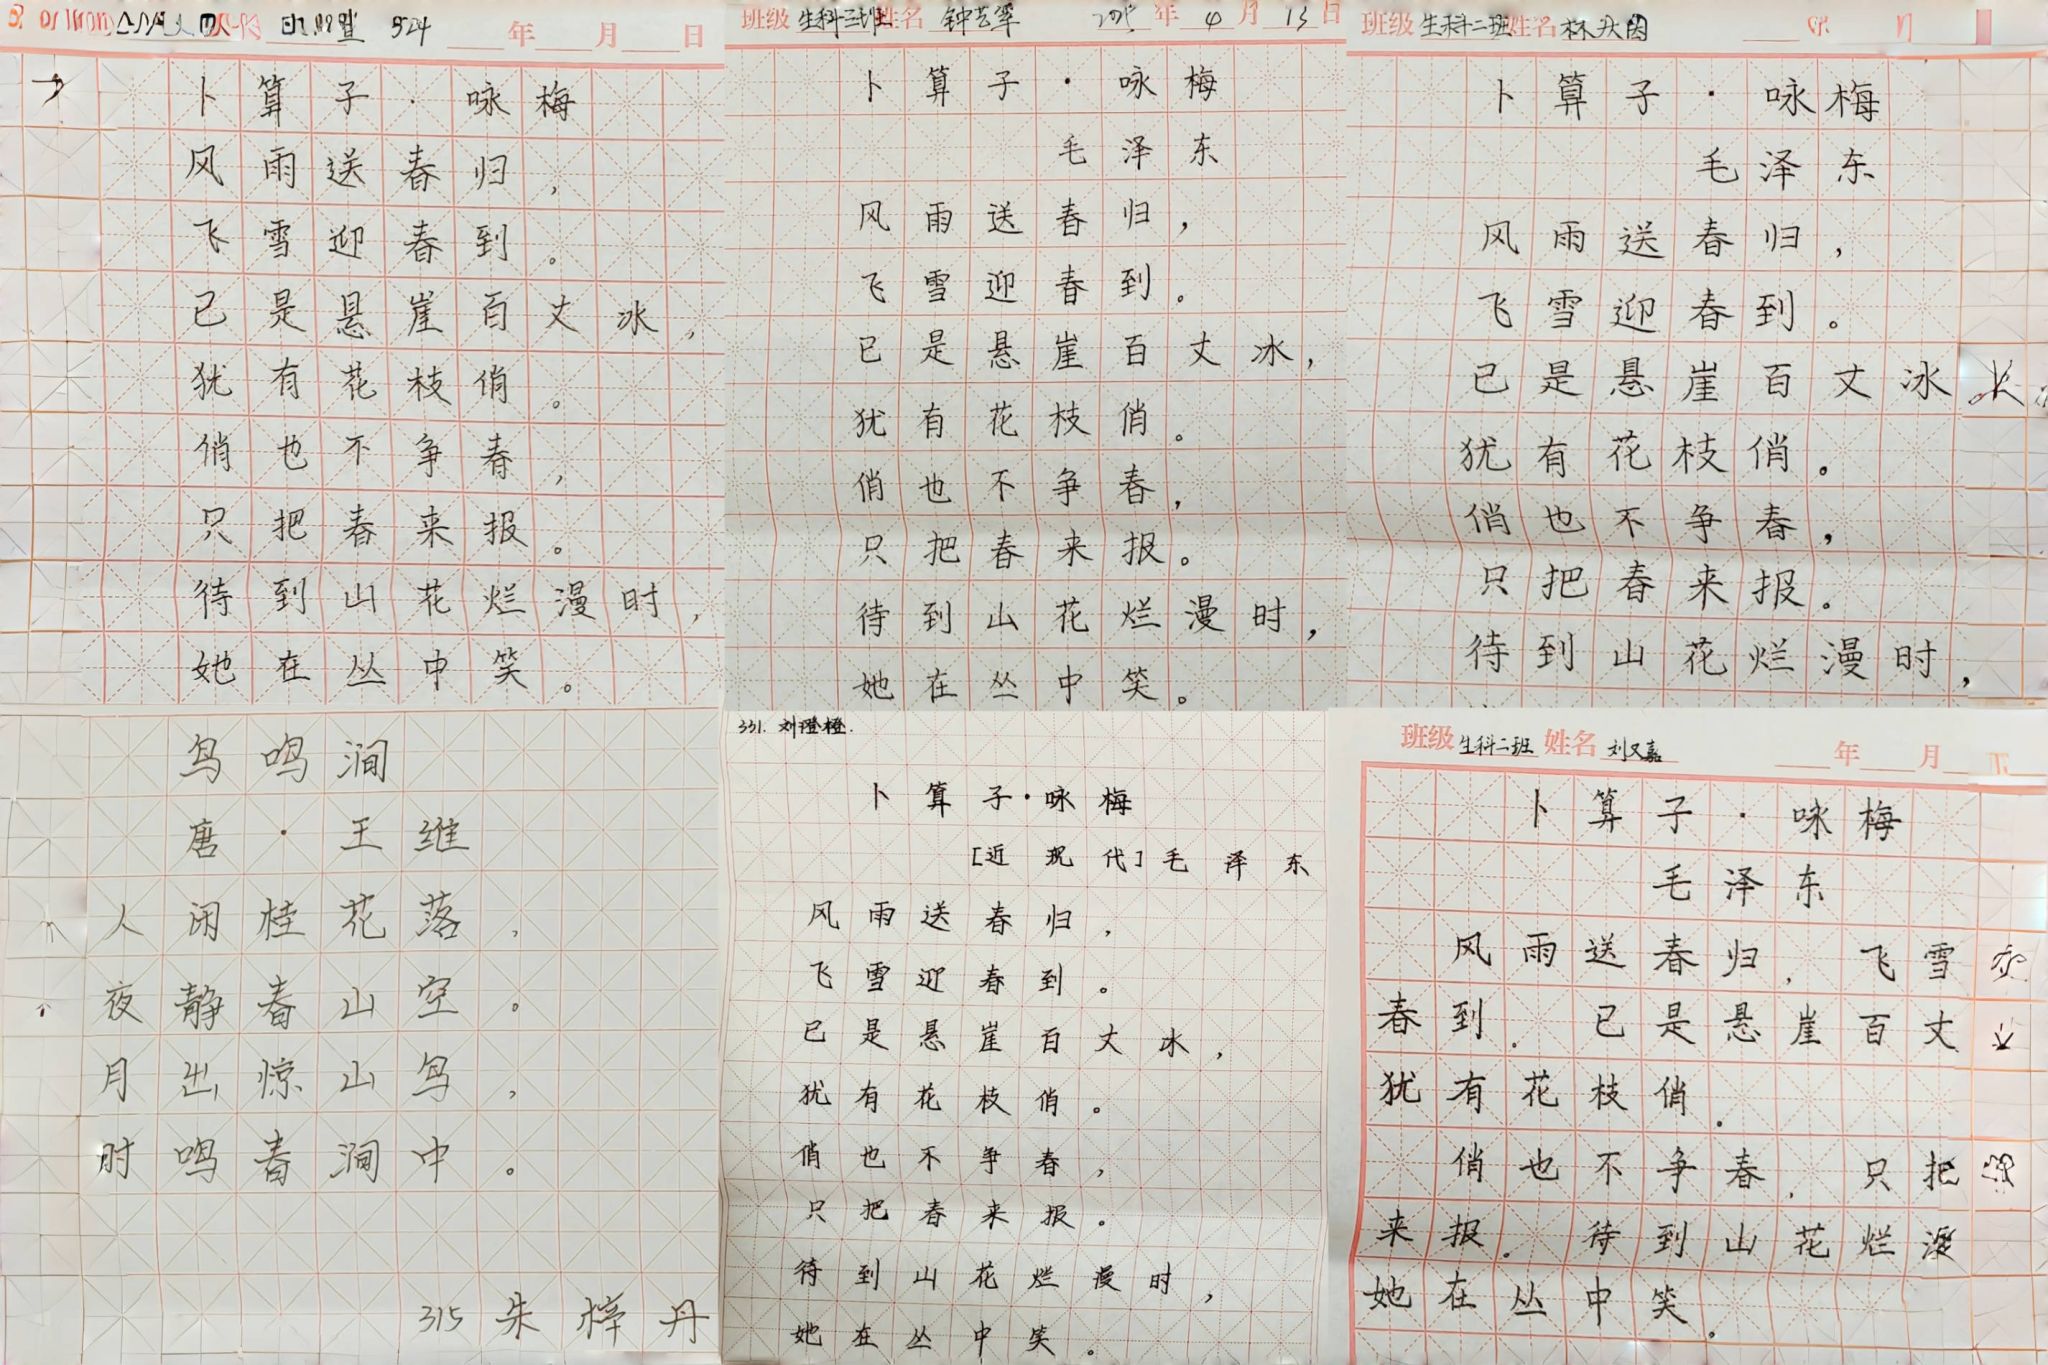 524
年 月 日
卜算子·咏梅
风雨送春归，
飞雪迎春到。
已是悬崖百丈冰，
犹有花枝俏。
俏也不争春，
只把春来报。
待到山花烂漫时，
她在丛中笑。
班级 生科三班 姓名 钟艺 年 4 月 13 日
卜算子·咏梅
毛泽东
风雨送春归，
飞雪迎春到。
已是悬崖百丈冰，
犹有花枝俏。
俏也不争春，
只把春来报。
待到山花烂漫时，
她在丛中笑。
班级 生科二班 姓名 林
卜算子·咏梅
毛泽东
风雨送春归，
飞雪迎春到。
已是悬崖百丈冰
犹有花枝俏。
俏也不争春，
只把春来报。
待到山花烂漫时，
鸟鸣涧
唐·王维
人闲桂花落，
夜静春山空。
月出惊山鸟，
时鸣春涧中。
315 朱梓丹
331. 刘澄橙.
卜算子·咏梅
[近现代]毛泽东
风雨送春归，
飞雪迎春到。
已是悬崖百丈冰，
犹有花枝俏。
俏也不争春，
只把春来报。
待到山花烂漫时，
她在丛中笑。
班级 生科二班 姓名 刘又嘉 年 月
卜算子·咏梅
毛泽东
风雨送春归，飞雪
春到。已是悬崖百丈
犹有花枝俏。
俏也不争春，只把
来报。待到山花烂漫
她在丛中笑。